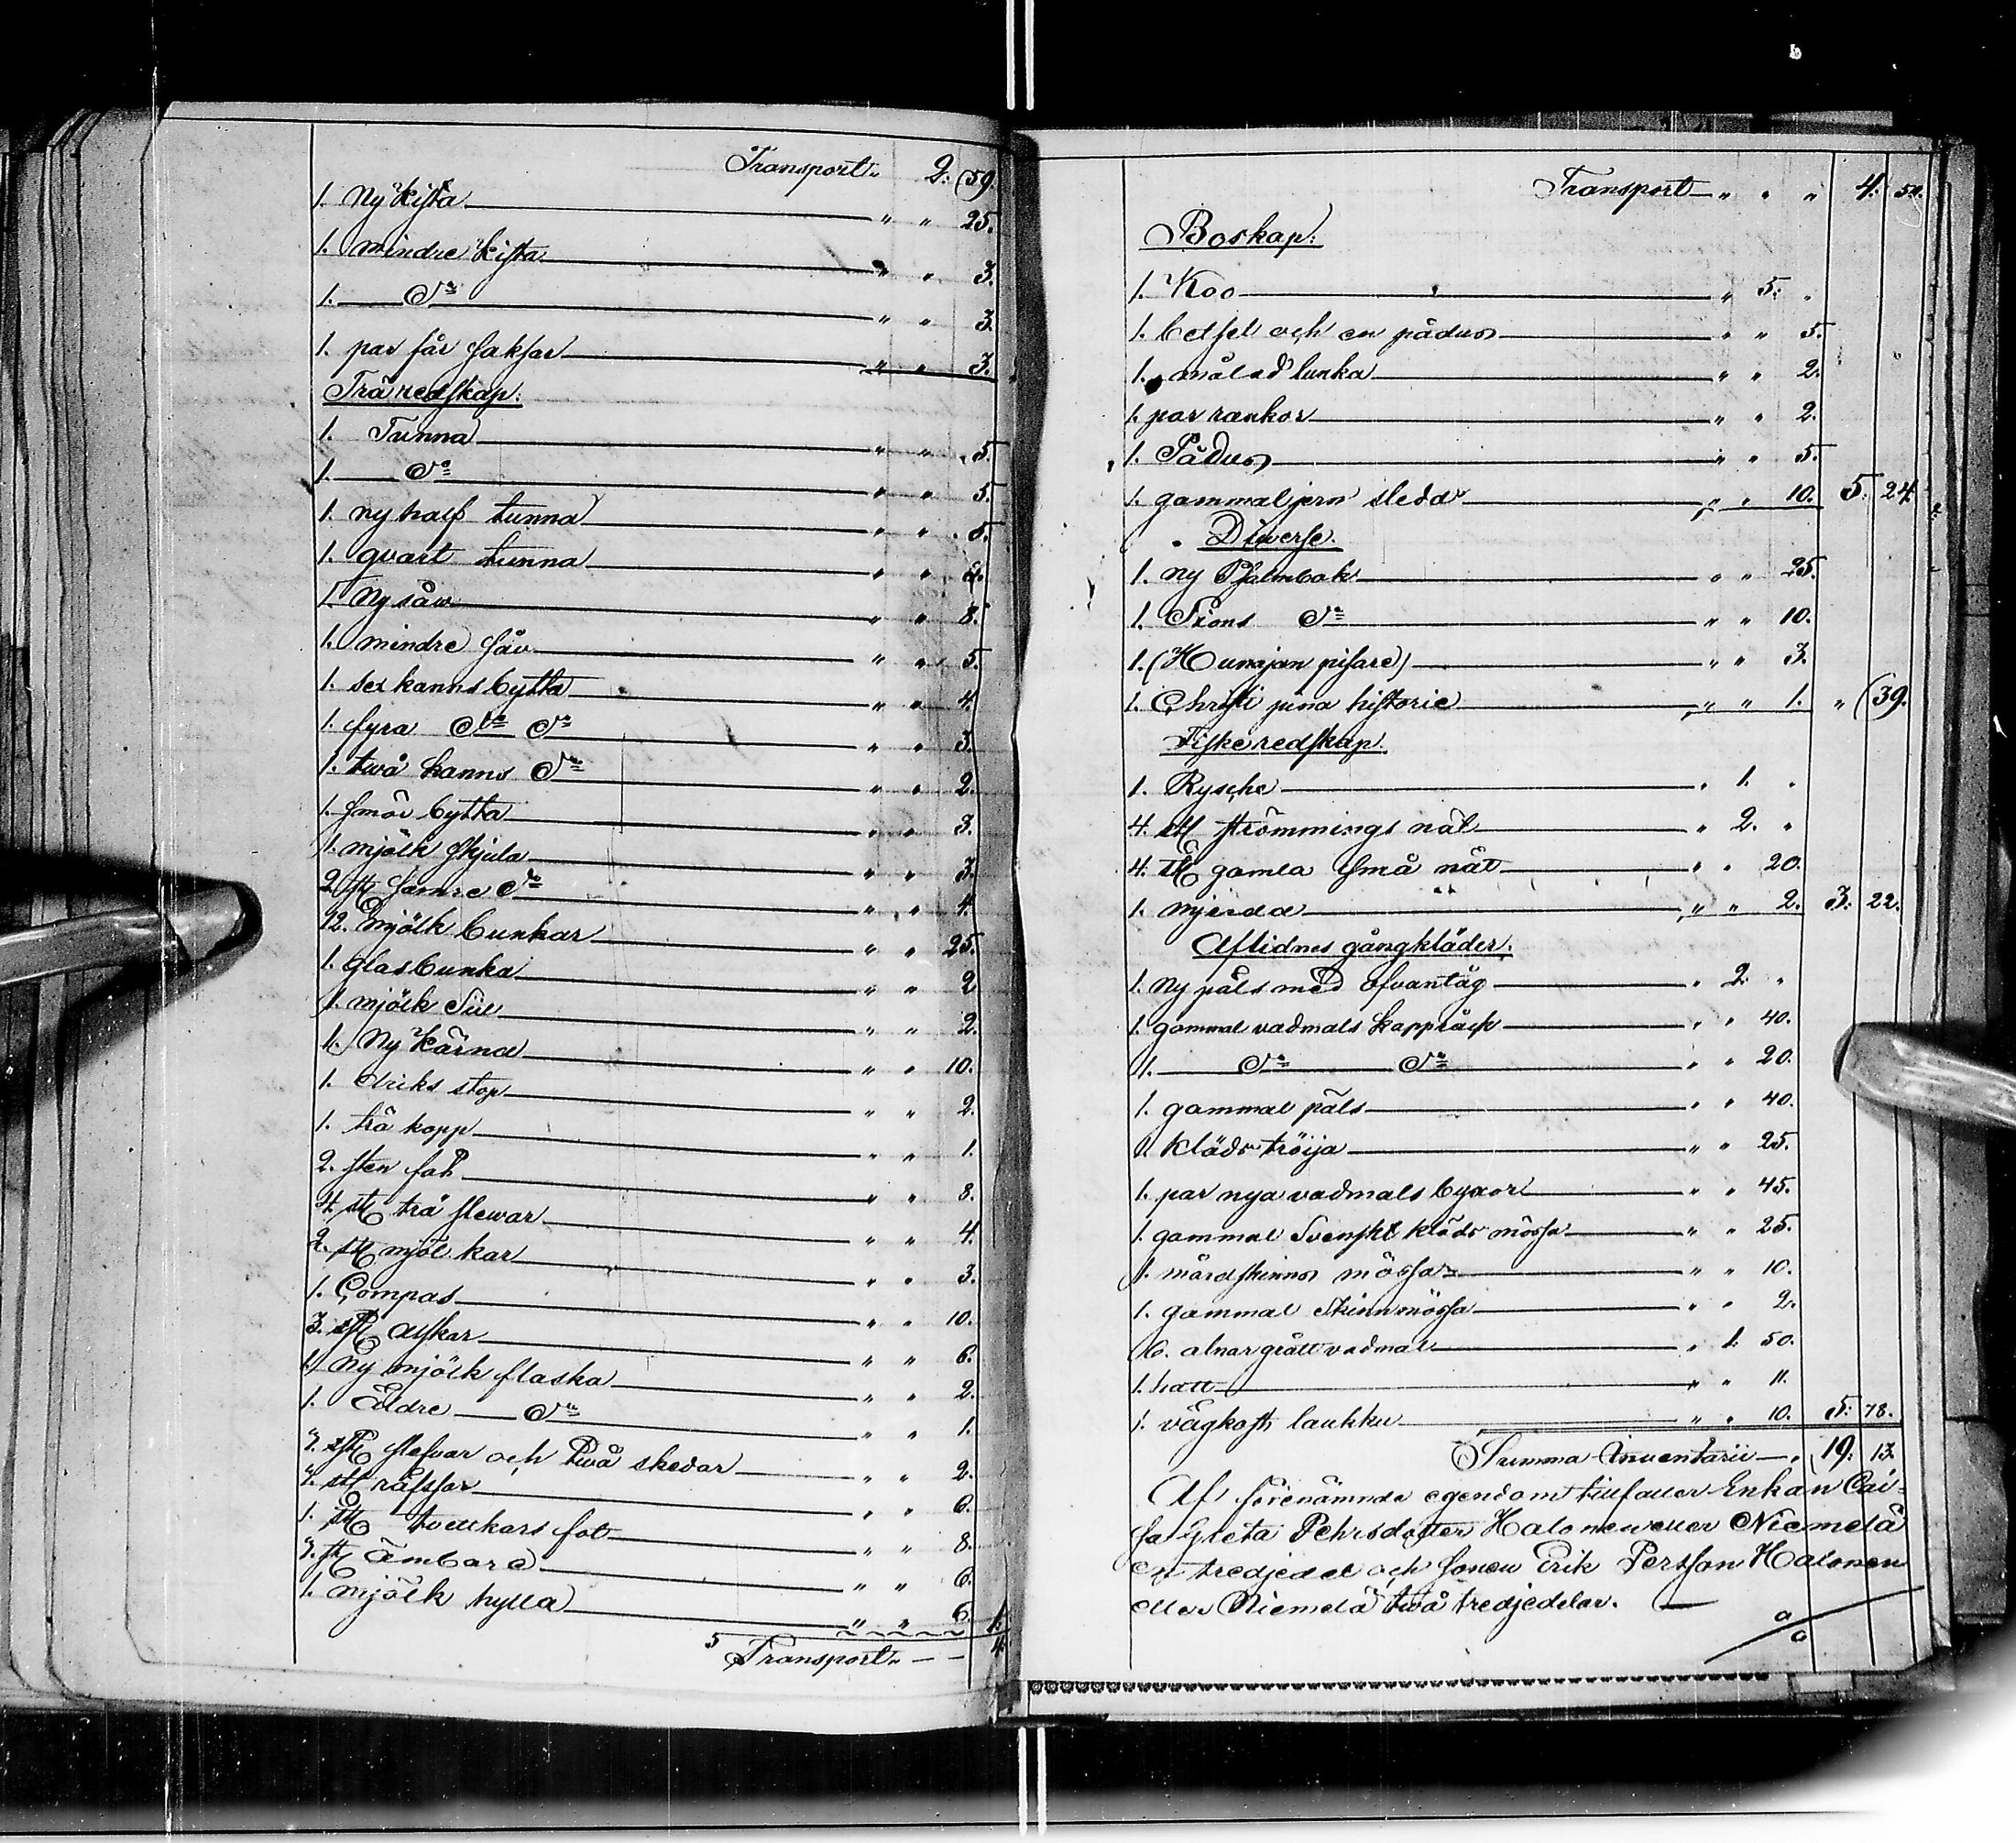 Transport 2: 59.
1. Ny Kista " " 25.
1. mindre Kista " " 3.
1. Do " " 3.
1. par får saksar " " 3.
Träredskap:
1. Tunna " " 5.
1. Do " " 5.
1. ny half tunna " " 5.
1. qvart tunna " "
1. Ny såw " " 8.
1. mindre såw " " 5.
1. sex kanns bytta " " 4.
1. fyra Do Do " " 3.
1. twå kanns Do " " 2.
1. smör bytta " " 3.
1. mjölk skjula " " 3.
2. st sämre Do " " 4.
12. mjölk bunkar " " 25.
1. glasbunka " " 2
1. mjölk Sil " " 2.
1. Ny Kärna " " 10.
1. driks stop " " 2.
1. trä kopp " " 1.
2. sten fat " " 8.
4. st trä slewar " " 4.
2. st mjöl kar " " 3.
1. Compas " " 10.
3. st askar " " 6.
1. Ny mjölk flaska " " 2.
1. Äldre Do " " 1.
st slefvar och två skedar " " 2.
st räfssor " " 6.
1. st fat " " 8.
st ämbare " " 6.
1. mjölk hylla " " 6.
Transport 4.
Transport " " " 4. 50.
Boskap:
1. Koo " 5. "
1. betsel och en pådus " " 5.
1. målad lunka " " 2.
1. par rankor " " 2.
1. Pådus " " 5.
1. gammal jern sleda " " 10. 5. 24.
Diverse.
1. ny Psalmbok " " 25.
1. Sions Do " " 10.
1. (Hunajan pisare) " " 3.
1. Christi pina historie " " 1. " 39.
Fiskeredskap.
1. Rysche " 1. "
4. st strömmings nät " 2. "
4. st gamla små nät " " 20.
1. mjerda " " 2. 3. 22.
Aflidnes gångkläder.
1. ny päls med ofvantåg " 2. "
1. gammal vadmals kappråck " " 40.
1. Do Do " " 20.
1. gammal päls " " 40.
1. kläds tröija " " 25.
1. par nya vadmals byxor " " 45.
1. gammal Svenskt kläds mössa " " 25.
1. mårdskinns mössa " " 10.
1. gammal skinnmössa " " 2.
6. alnar grått vadmal " 1. 50.
1. hatt " " 11.
1. vägkost laukku " " 10. 5. 78.
Summa Inventarii 19. 13.
Af förenämnde egendom tillfaller Enkan Cai-
sa Greta Pehrsdotter Halonen eller Niemelä
en tredjedel och sonen Erik Persson Halonen
eller Niemelä två tredjedelar.